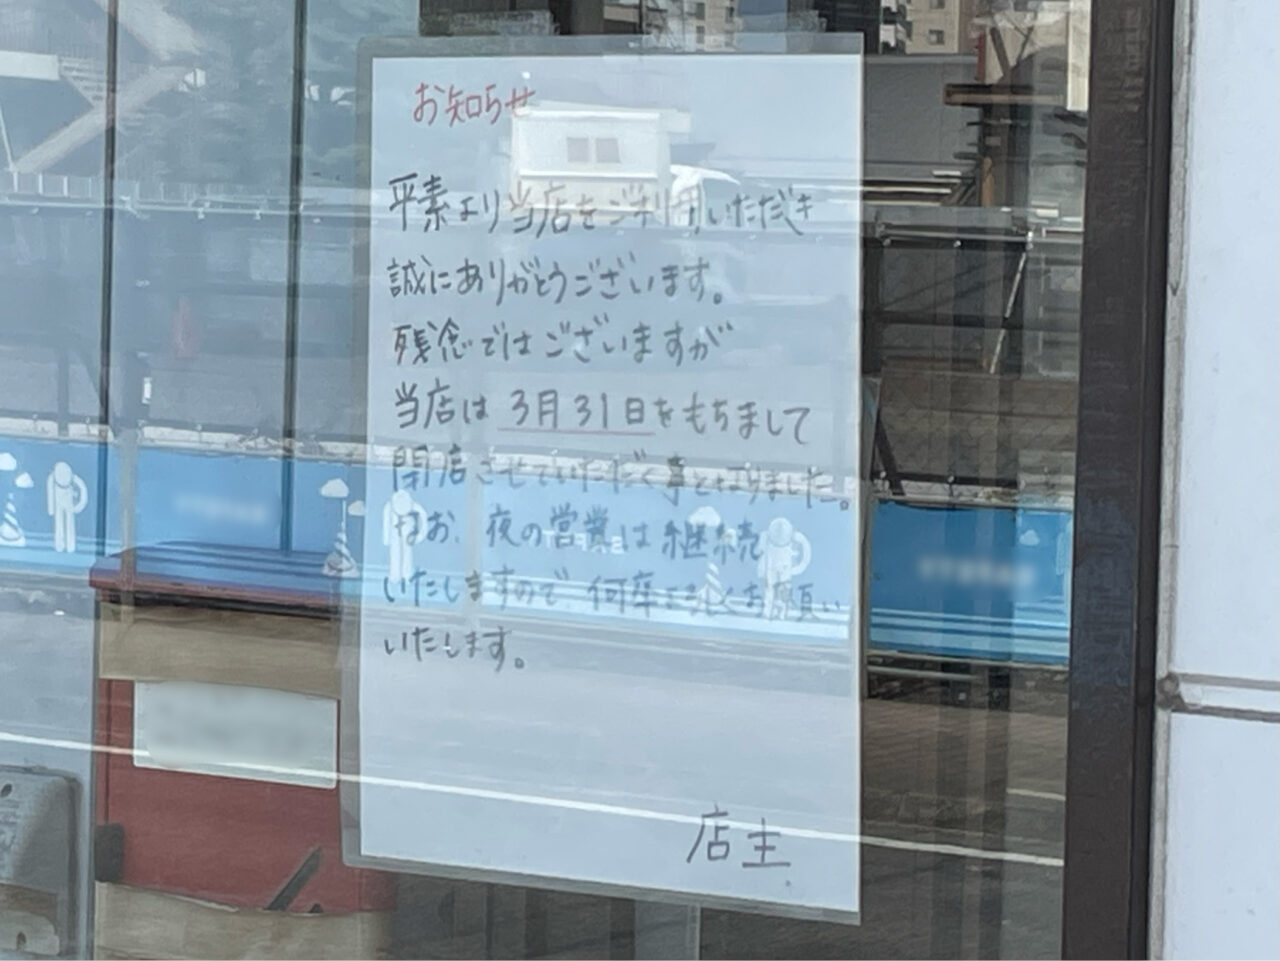 お知らせ
平素より当店をご利用いただき
誠にありがとうございます。
残念ではございますが
当店は3月31日をもちまして
閉店させていただく事となりました。
なお、夜の営業は継続
いたしますので、何卒よろしくお願い
いたします。
店主